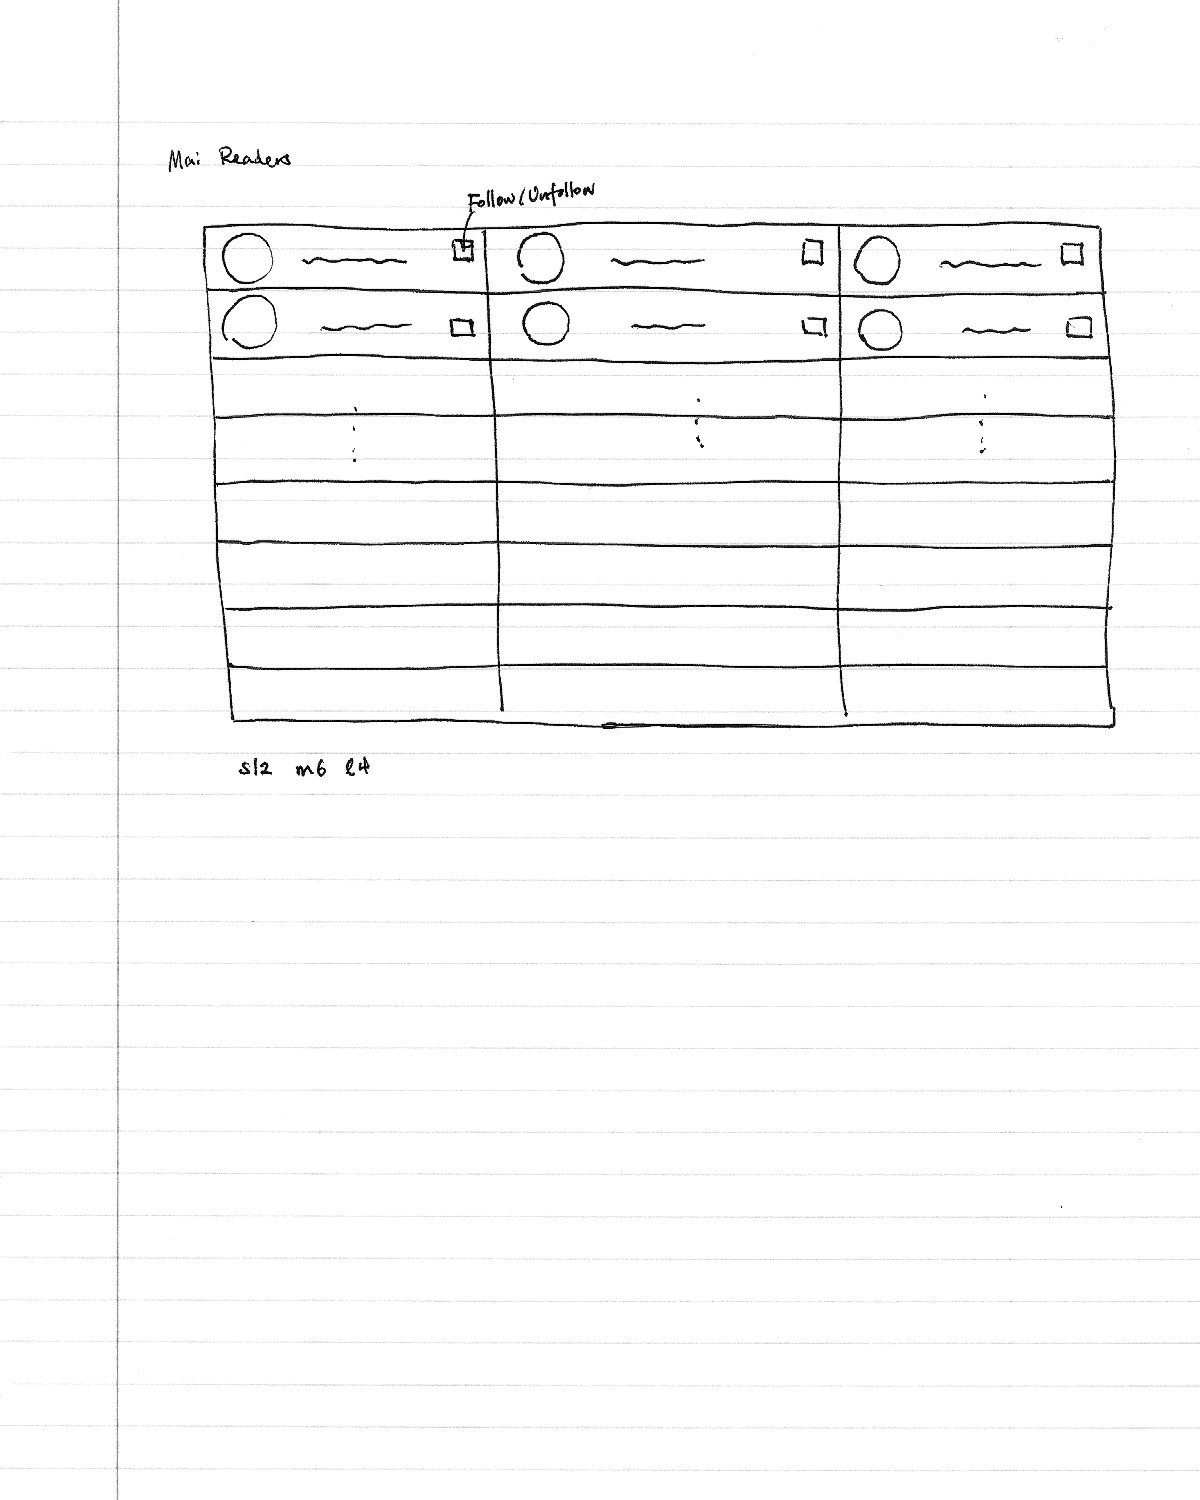 Mai Readers
Follow/Unfollow
s12 m6 l4